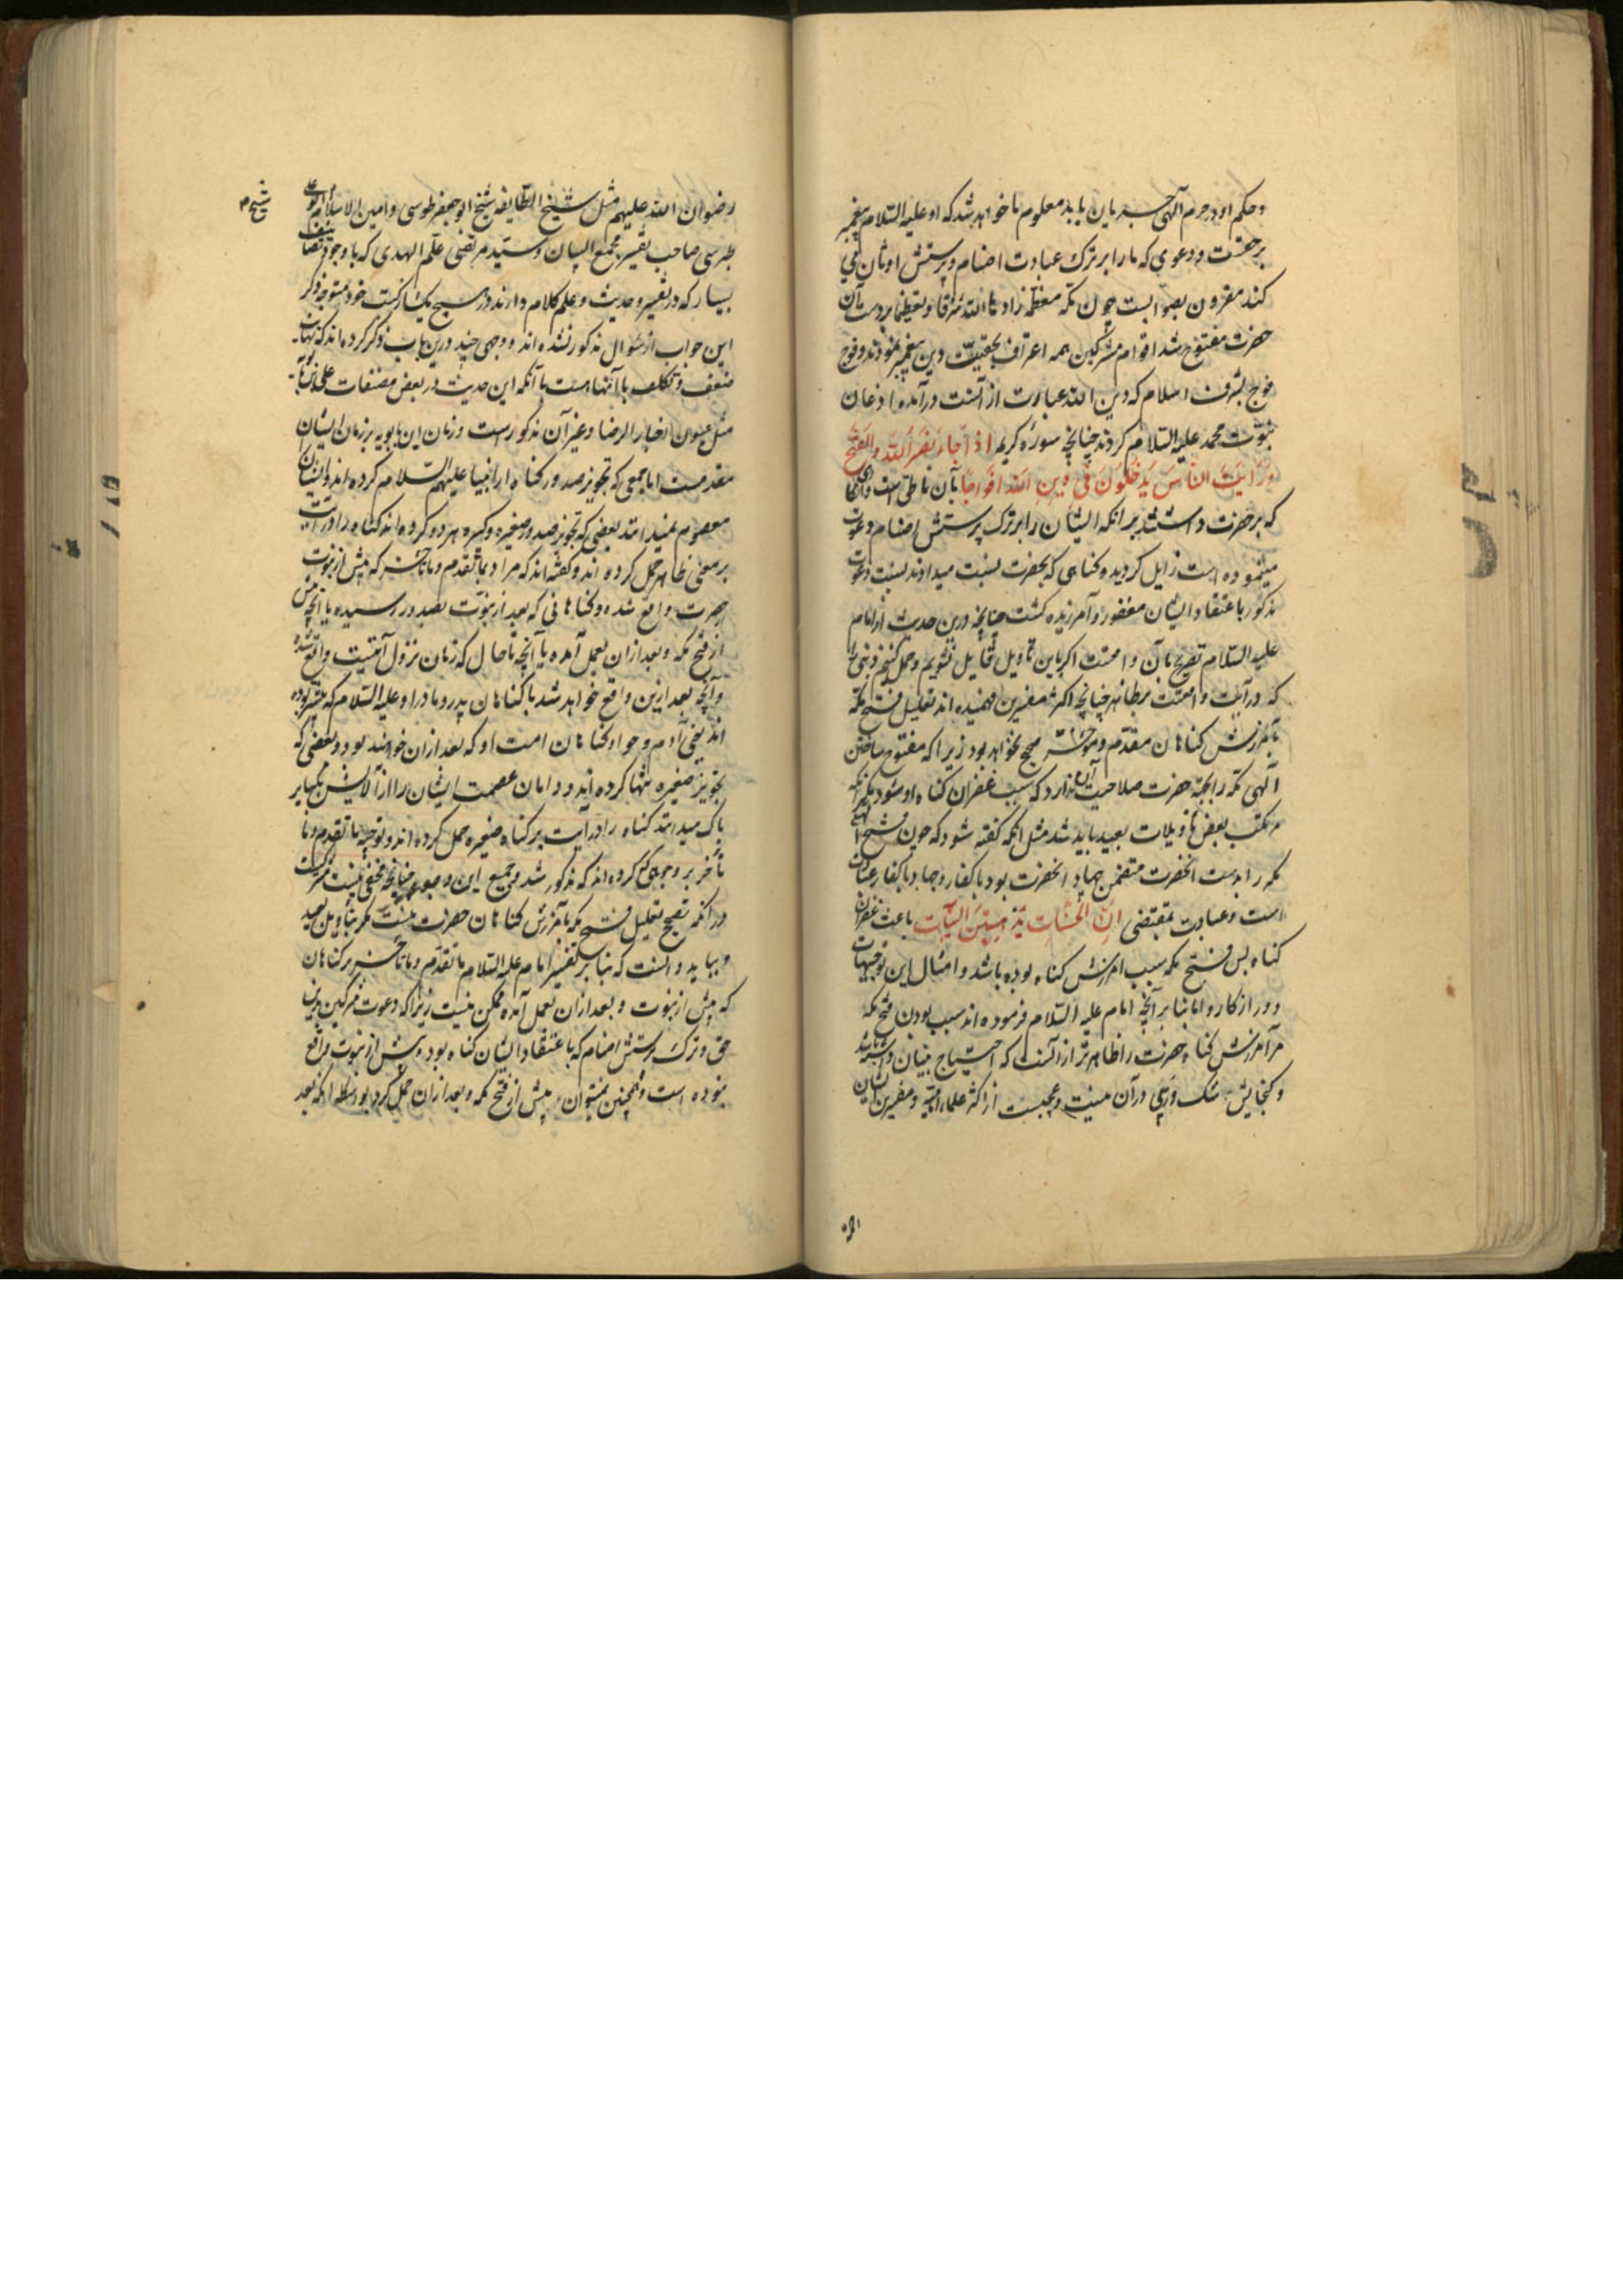 و حکم او در حرم آلهی جریان یابد معلوم ما خواهد شد که او علیه السلام پیغمبر
بر حقست و دعوی که ما را بر ترک عبادت اصنام و پرستش اوثان می
کند مقرون بصوابست چون مکه معظمه زادها الله شرفا و تعظیما بر دست آن
حضرت مفتوح شد اقوام مشرکین همه اعتراف بحقیت دین پیغمبر نمودند و فوج
فوج بشرف اسلام که دین الله عبارت از آنست در آمده اذعان
نبوت محمد علیه السلام کردند چنانچه سوره کریمه اذا جاء نصر الله والفتح
ورایت الناس یدخلون فی دین الله افواجا بآن ناطق است و
که بر حضرت داشتند بر انکه ایشان را بر ترک پرستش اصنام دعوت
مینموده است زایل کردیده و کناهی که بحضرت نسبت میدادند بسبب دعوت
مذکور باعتقاد ایشان مغفور و آمرزیده کشت چنانچه درین حدیث از امام
علیه السلام تصریح بآن واقعست اکر باین تاویل قایل نشویم و حمل کنیم ذنبی را
که در آیت واقعست بر ظاهر چنانچه اکثر مفسرین فهمیده اند تعلیل فتح مکه
بآمرزش کناهان مقدم و موخر صحیح نخواهد بود زیرا که مفتوح ساختن
آلهی مکه را بجهة حضرت صلاحیت آن ندارد که سبب غفران کناه او شود مکر آنکه
مرتکب بعض تاویلات بعید باید شد مثل انکه کفته شود که چون فتح
مکه را بدست آنحضرت متضمن جهاد آنحضرت بود با کفار و جهاد با کفار عبادت
است و عبادت بمقتضی ان الحسنات یذهبن السیآت باعث غفران
کناه پس فتح مکه سبب امرزش کناه بوده باشد و امثال این توجیهات
دور از کار و اما بنا بر آنچه امام علیه السلام فرموده اند سبب بودن فتح مکه
مر آمرزش کناه حضرت را ظاهرتر از آنست که احتیاج ببیان داشته باشد
و کنجایش شک و ریبی در آن نیست و عجبست از اکثر علماء امامیه و مفسرین ایشان
رضوان الله علیهم مثل شیخ الطایفه شیخ ابو جعفر طوسی و امین الاسلام ابو علی
طبرسی صاحب تفسیر مجمع البیان و سید مرتضی علم الهدی که با وجود تصانیف
بسیار که در تفسیر و حدیث و علم کلام دارند در هیچ یک از کتب خود متوجه ذکر
این جواب از سئوال مذکور نشده اند و وجهی چند درین باب ذکر کرده اند که نهایت
ضعف و تکلف با آنهاست با آنکه این حدیث در بعض مصنفات علی بن بابویه
مثل عیون اخبار الرضا و غیر آن مذکور است و زمان ابن بابویه بر زمان ایشان
مقدمست اما جمعی که تجویز صدور کناه از انبیا علیهم السلام کرده اند و ایشان را
معصوم نمیدانند بعضی که تجویز صدور صغیره و کبیره هر دو کرده اند کناه را در آیت
بر معنی ظاهر حمل کرده اند و کفته اند که مراد بما تقدم و ما تاخر که پیش از نبوت
حضرت واقع شده و کناهانی که بعد از نبوت بصدور رسیده یا آنچه پیش
از فتح مکه و بعد از آن بعمل آمده یا آنچه تا حال که زمان نزول آیتست واقع شده
و آنچه بعد ازین واقع خواهد شد یا کناهان پدر و مادر او علیه السلام که پیشتر بوده
اند یعنی آدم و حوا و کناهان امت او که بعد از آن خواهند بود و بعضی که
تجویز صغیره تنها کرده اند و دامان عصمت ایشان را از آلایش کبایر
پاک میدانند کناه را در آیت بر کناه صغیره حمل کرده اند و توجیه ما تقدم و ما
تاخر بر وجوهی کرده اند که مذکور شد و جمیع این وجوه چنانچه مخفی نیست مشترکست
در آنکه تصحیح تعلیل فتح مکه بآمرزش کناهان حضرت نیست مکر بتاویل بعید
و بباید دانست که بنا بر تفسیر امام علیه السلام ما تقدم و ما تاخر بر کناهان
که پیش از نبوت و بعد از آن بعمل آمده ممکن نیست زیرا که دعوت مشرکین بدین
حق و ترک پرستش اصنام که باعتقاد ایشان کناه بوده پیش از نبوت واقع
نبوده است و همچنین نمیتوان پیش از فتح مکه و بعد از آن حمل کرد بواسطه انکه بعد